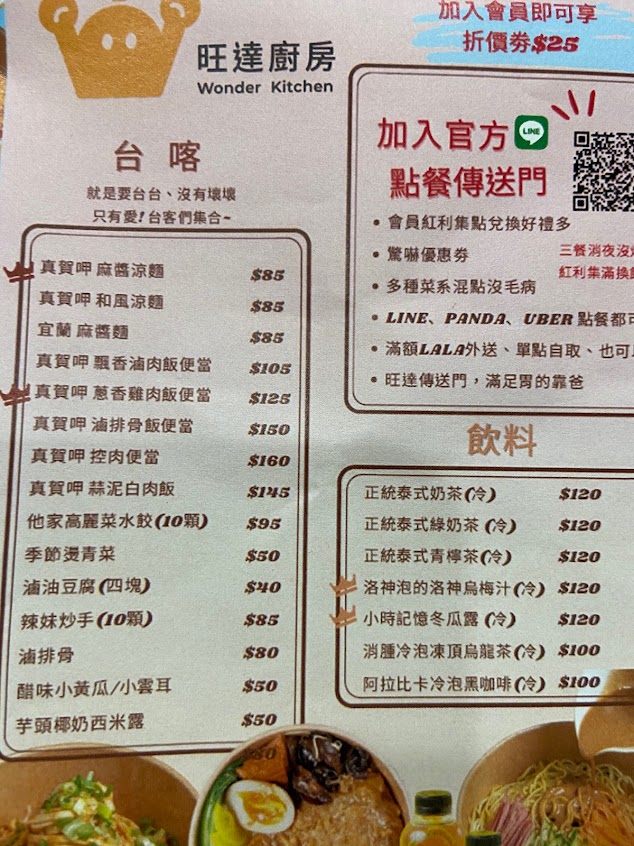 旺達廚房
Wonder Kitchen
加入會員即可享
折價券$25
台 喀
就是要台台、沒有壞壞
只有愛!台客們集合~
真賀呷 麻醬涼麵 $85
真賀呷 和風涼麵 $85
宜蘭 麻醬麵 $85
真賀呷 飄香滷肉飯便當 $105
真賀呷 蔥香雞肉飯便當 $125
真賀呷 滷排骨飯便當 $150
真賀呷 控肉便當 $160
真賀呷 蒜泥白肉飯 $145
他家高麗菜水餃(10顆) $95
季節燙青菜 $50
滷油豆腐(四塊) $40
辣妹炒手(10顆) $85
滷排骨 $80
醋味小黃瓜/小雲耳 $50
芋頭椰奶西米露 $50
加入官方 LINE
點餐傳送門
• 會員紅利集點兌換好禮多
• 驚嚇優惠券
三餐消夜沒
紅利集滿換
• 多種菜系混點沒毛病
• LINE、PANDA、UBER 點餐都可
• 滿額LALA外送、單點自取、也可
• 旺達傳送門，滿足胃的靠爸
飲料
正統泰式奶茶(冷) $120
正統泰式綠奶茶(冷) $120
正統泰式青檸茶(冷) $120
洛神泡的洛神烏梅汁(冷) $120
小時記憶冬瓜露(冷) $120
消腫冷泡凍頂烏龍茶(冷) $100
阿拉比卡冷泡黑咖啡(冷) $100